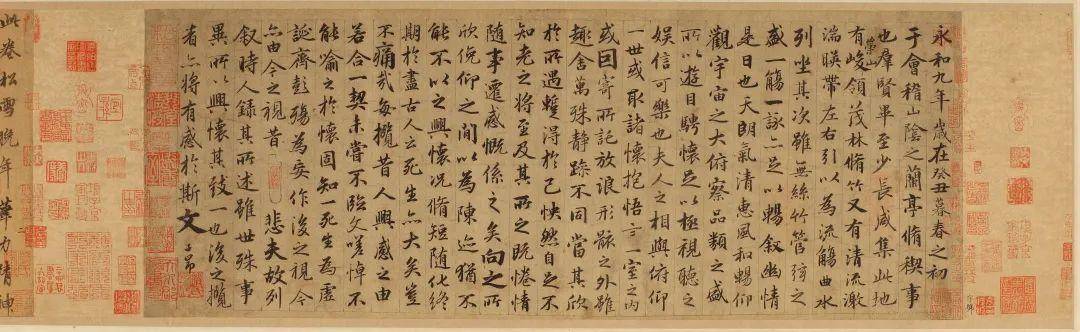 永和九年歲在癸丑暮春之初
于會稽山陰之蘭亭脩禊事
也羣賢畢至少長咸集此地
有崇山峻領茂林脩竹又有清流激
湍暎帶左右引以為流觴曲水
列坐其次雖無絲竹管弦之
盛一觴一詠亦足以暢敘幽情
是日也天朗氣清惠風和暢仰
觀宇宙之大俯察品類之盛
所以遊目騁懷足以極視聽之
娛信可樂也夫人之相與俯仰
一世或取諸懷抱悟言一室之內
或因寄所託放浪形骸之外雖
趣舍萬殊靜躁不同當其欣
於所遇蹔得於己怏然自足不
知老之將至及其所之既惓情
隨事遷感慨係之矣向之所
欣俛仰之間以為陳迹猶不
能不以之興懷況脩短隨化終
期於盡古人云死生亦大矣豈
不痛哉每攬昔人興感之由
若合一契未嘗不臨文嗟悼不
能喻之於懷固知一死生為虛
誕齊彭殤為妄作後之視今
亦由今之視昔悲夫故列
敘時人錄其所述雖世殊事
異所以興懷其致一也後之攬
者亦將有感於斯文子昂
此卷松雪晚年筆力精神